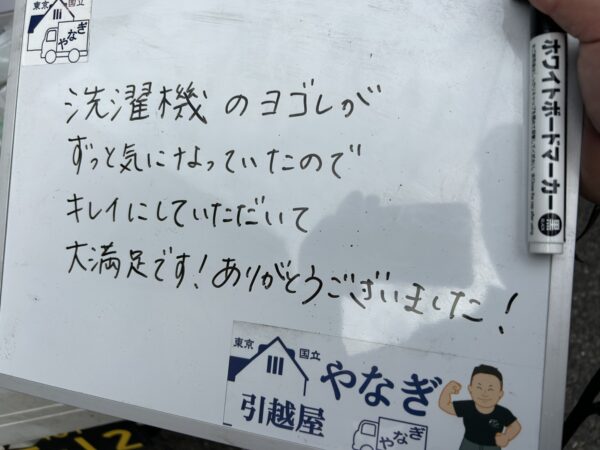 東京 国立
やなぎ
洗濯機のヨゴレが
ずっと気になっていたので
キレイにしていただいて
大満足です！ありがとうございました！
ホワイトボードマーカー 黒
東京 国立
やなぎ
引越屋
やなぎ